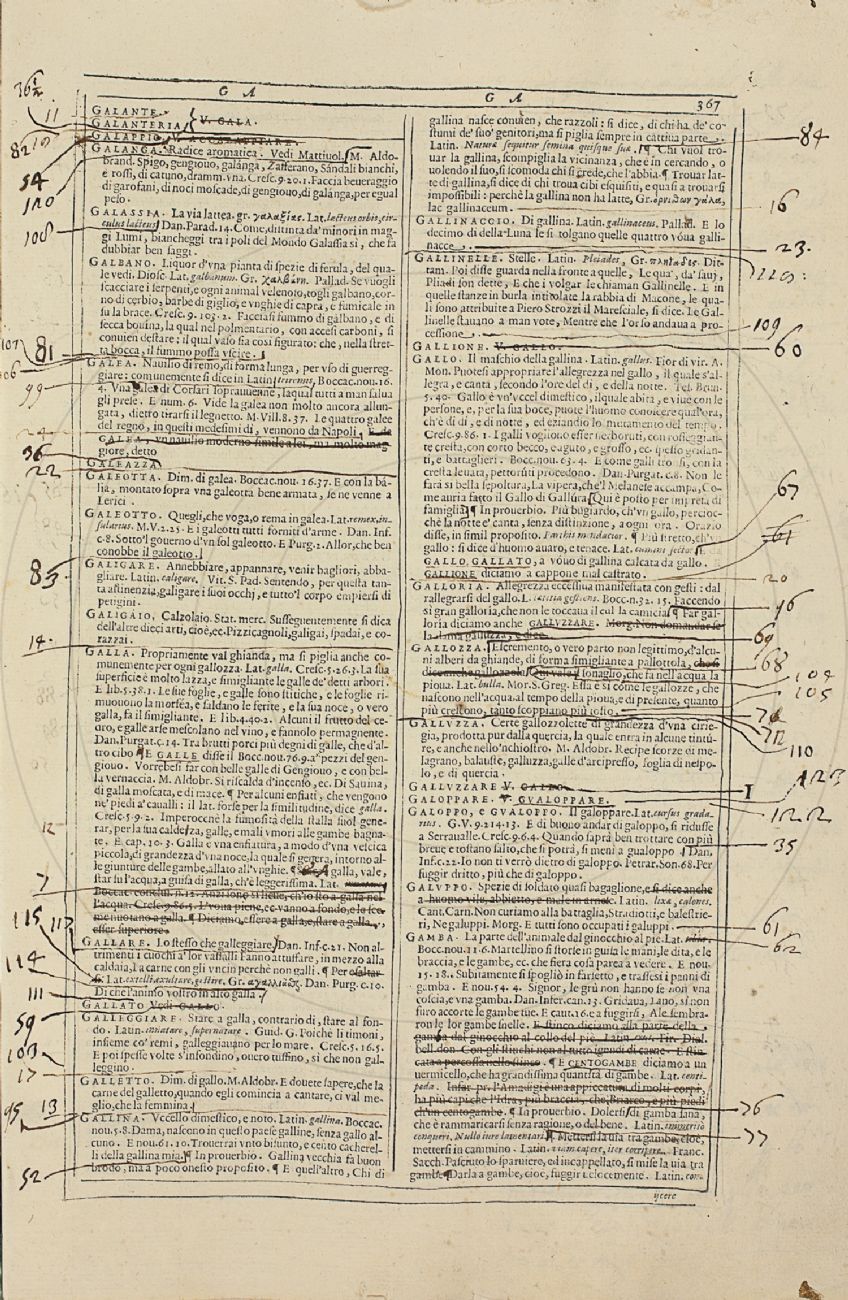 G A
G A
367
GALANTE.
GALANTERIA V. GALA.
GALAPPIO,
GALANGA. Radice aromatica. Vedi Mattiuol. M. Aldo-
brand. Spigo, gengiouo, galanga, Zafferano, Sandali bianchi,
e rossi, di catuno, dramm. vna. Cresc. 9.20.1. Faccia beueraggio
di garofani, di noci moscade, di gengiouo, di galanga, per egual
peso.
GALASSIA. La via lattea. gr. γαλαξίας. Lat. lacteus orbis, cir-
culus lacteus. Dan. Parad. 14. Come, distinta da' minori in mag-
gi Lumi, biancheggi tra i poli del Mondo Galassia sì, che fa
dubbiar ben saggi.
GALBANO. Liquor d'vna pianta di spezie di ferula, del qua-
le vedi. Diosc. Lat. galbanum. Gr. χαλβάνη. Pallad. Se vuogli
scacciare i serpenti, e ogni animal velenoso, togli galbano, cor-
no di cerbio, barbe di giglio, e vnghie di capra, e fumicale in
su la brace. Cresc. 9.103.2. Facciasi fummo di galbano, e di
secca bouina, la qual nel polmentario, con accesi carboni, si
conuien destare: il qual vaso sia così figurato: che, nella stret-
ta bocca, il fummo possa vscire.
GALEA. Nauilio di remo, di forma lunga, per vso di guerreg-
giare: comunemente si dice in Latin triremis. Boccac. nou. 16.
4. Vna galea di Corsari soprauuenne, laqual tutti a man salua
gli prese. E num. 6. Vide la galea non molto ancora allun-
gata, dietro tirarsi il legnetto. M. Vill. 8.37. Le quattro galee
del regno, in questi medesimi dì, vennono da Napoli. E da
GALEA, vn nauilio moderno simile a lei, ma molto mag-
giore, detto
GALEAZZA.
GALEOTTA. Dim. di galea. Boccac. nou. 16.37. E con la bà-
lia, montato sopra vna galeotta bene armata, se ne venne a
Lerici.
GALEOTTO. Quegli, che voga, o rema in galea. Lat. remex, in-
sularius. M.V.2.25. E i galeotti tutti forniti d'arme. Dan. Inf.
c.8. Sotto'l gouerno d'vn sol galeotto. E Purg. 2. Allor, che ben
conobbe il galeotto.
GALIGARE. Annebbiare, appannare, venir bagliori, abba-
gliare. Latin. caligare. Vit. S. Pad. Sentendo, per questa tan-
ta astinenzia, galigare i suoi occhj, e tutto'l corpo empiersi di
petigini.
GALIGAIO, Calzolaio. Stat. merc. Susseguentemente si dica
dell'altre dieci arti, cioè, ec. Pizzicagnoli, galigai, spadai, e co-
razzai.
GALLA. Propriamente val ghianda, ma si piglia anche co-
munemente per ogni gallozza. Lat. galla. Cresc. 5.26.3. La sua
superficie è molto lazza, e simigliante le galle de' detti arbori.
E lib. 5.38.1. Le sue foglie, e galle sono stitiche, e le foglie ri-
muouono la morfea, e saldano le ferite, e la sua noce, o vero
galla, fa il simigliante. E lib. 4.40.2. Alcuni il frutto del ce-
dro, e galle arse mescolano nel vino, e fannolo permagnente.
Dan. Purgat. c. 14. Tra brutti porci più degni di galle, che d'al-
tro cibo ¶ E GALLE disse il Bocc. nou. 76.9. a' pezzi del gen-
giouo. Vorrebesi far con belle galle di Gengiouo, e con bel-
la vernaccia. M. Aldobr. Si riscalda d'incenso, ec. Di Sauina,
di galla moscata, e di mace. ¶ Per alcuni enfiati, che vengono
ne' piedi a' caualli: il lat. forse per la similitudine, dice galla.
Cresc. 5.9.2. Imperocchè la fumosità della stalla suol gene-
rar, per la sua caldezza, galle, e mali vmori alle gambe bagna-
te. E cap. 10.3. Galla è vna enfiatura, a modo d'vna vescica
piccola, di grandezza d'vna noce, la quale si genera, intorno al-
le giunture delle gambe, allato all'vnghie. ¶ galla, vale,
star su l'acqua, a guisa di galla, ch'è leggerissima. Lat.
Boccac. conclus. n. 12. Anzi sono sì lieue, ch'io sto a galla nel
l'acqua. Cresc. 9.86.5. L'voua piene, ec. vanno a fondo, e lo sce-
me nuotano a galla. ¶ Diciamo, essere a galla, e stare a galla,
esser superiore.
GALLARE. Lo stesso che galleggiare. Dan. Inf. c. 21. Non al-
trimenti i cuochi a' lor vassalli Fanno attuffare, in mezzo alla
caldaia, La carne con gli vncin perchè non galli. ¶ Per esaltar-
si. Lat. extolli, exultare, gestire. Gr. ἀγαλλιᾶν. Dan. Purg. c. 10.
Di che l'animo vostro in alto galla.
GALLATO Vedi GALLO.
GALLEGGIARE. Stare a galla, contrario di, stare al fon-
do. Latin. innatare, supernatare. Guid. G. Poichè li timoni,
insieme co' remi, galleggiauano per lo mare. Cresc. 5.16.5.
E poi spesse volte s'infondino, ouero tuffino, sì che non gal-
leggino.
GALLETTO. Dim. di gallo. M. Aldobr. E douete sapere, che la
carne del galletto, quando egli comincia a cantare, ci val me-
glio, che la femmina.
GALLINA. Vccello dimestico, e noto. Latin. gallina. Boccac.
nou. 5.8. Dama, nascono in questo paese galline, senza gallo al-
cuno. E nou. 61.10. Trouerai vnto bisunto, e cento cacherel-
li della gallina mia. ¶ In prouerbio. Gallina vecchia fa buon
brodo, ma a poco onesto proposito. ¶ E quell'altro, Chi di
gallina nasce conuien, che razzoli: si dice, di chi ha de' co-
stumi de' suo' genitori, ma si piglia sempre in cattiua parte.
Latin. Natura sequitur semina quisque sua. ¶ Chi vuol tro-
uar la gallina, scompiglia la vicinanza, che è in cercando, o
uolendo il suo, si scomoda chi si crede, che l'abbia. ¶ Trouar lat-
te di gallina, si dice di chi troua cibi esquisiti, e quasi a trouarsi
impossibili: perchè la gallina non ha latte, Gr. ὀρνίθων γάλα,
lac gallinaceum.
GALLINACCIO. Di gallina. Latin. gallinaceus. Pallad. E lo
decimo dì della Luna le si tolgano quelle quattro voua galli-
nacce.
GALLINELLE. Stelle. Latin. Pleiades, Gr. πληιάδες. Dit-
tam. Poi disse guarda nella fronte a quelle, Le qua', da' sauj,
Pliadi son dette, E che i volgar le chiaman Gallinelle. E in
quelle stanze in burla intitolate la rabbia di Macone, le qua-
li sono attribuite a Piero Strozzi il Maresciale, si dice. Le Gal-
linelle stauano a man vote, Mentre che l'orso andaua a pro-
cessione.
GALLIONE. V. GALLO.
GALLO. Il maschio della gallina. Latin. gallus. Fior di vir. A.
Mon. Puotesi appropriare l'allegrezza nel gallo, il quale s'al-
legra, e canta, secondo l'ore del dì, e della notte. Tes. Brun.
5.40. Gallo è vn'vccel dimestico, ilquale abita, e viue con le
persone, e, per la sua boce, puote l'huomo conoscere qual'ora,
ch'è di dì, e di notte, ed eziandio lo mutamento del tempo.
Cresc. 9.86.1. I galli vogliono esser nerboruti, con rosseggian-
te cresta, con corto becco, e aguto, e grosso, ec. ispesso gridan-
ti, e battaglieri. Bocc. nou. 63.4. E come galli tronfi, con la
cresta leuata, pettoruti procedono. Dan. Purgat. c. 8. Non le
farà sì bella sepoltura, La vipera, che'l Melanese accampa, Co-
me auria fatto il Gallo di Gallura. Qui è posto per impresa di
famiglia ¶ In prouerbio. Più bugiardo, ch'vn gallo, percioc-
chè la notte e' canta, senza distinzione, a ogni ora. Orazio
disse, in simil proposito. Parthis mendacior. ¶ Più stretto, ch'vn
gallo: si dice d'huomo auaro, e tenace. Lat. cumini sector
GALLO, GALLATO, a vouo di gallina calcata da gallo.
GALLIONE diciamo a cappone mal castrato.
GALLORIA. Allegrezza eccessiua manifestata con gesti: dal
rallegrarsi del gallo. L. laetitia gestiens. Bocc. n. 32. 15. Faccendo
sì gran galloria, che non le toccaua il cul la camicia ¶ Far gal-
loria diciamo anche GALLVZZARE. Morg. Non domandar se
la dama galluzza, e dice.
GALLOZZA. Escremento, o vero parto non legittimo, d'alcu-
ni alberi da ghiande, di forma simigliante a pallottola, che si
dice anche gallozzola. Qui vale sonaglio, che fa nell'acqua la
pioua. Lat. bulla. Mor. S. Greg. Essa è sì come le gallozze, che
nascono nell'acqua al tempo della pioua, e di presente, quanto
più crescono, tanto scoppiano più tosto.
GALLVZZA. Certe gallozzolette di grandezza d'vna cirie-
gia, prodotta pur dalla quercia, la quale entra in alcune tintu-
re, e anche nello 'nchiostro. M. Aldobr. Recipe scorze di me-
lagrano, balauste, galluzza, galle d'arcipresso, foglia di nespo-
lo, e di quercia.
GALLVZZARE V. GALLO.
GALOPPARE. V. GVALOPPARE.
GALOPPO, e GVALOPO. Il galoppare. Lat. cursus grada-
rius. G.V. 9.214.13. E di buono andar di galoppo, si ridusse
a Serraualle. Cresc. 9.6.4. Quando saprà ben trottare con più
breue e tostano salto, che si potrà, si meni a gualoppo. Dan.
Inf. c. 22. Io non ti verrò dietro di galoppo. Petrar. Son. 68. Per
fuggir dritto, più che di galoppo.
GALVPPO. Spezie di soldato quasi bagaglione, e si dice anche
a huomo vile, abbietto, e male in arnese. Latin. lixa, calones.
Cant. Carn. Non curiamo alla battaglia, Stradiotti, e balestrie-
ri, Ne galuppi. Morg. E tutti sono occupati i galuppi.
GAMBA. La parte dell'annale dal ginocchio al piè. Lat.
Bocc. nou. 11.6. Martellino si storse in guisa le mani, le dita, e le
braccia, e le gambe, ec. che fiera cosa parea a vedere. E nou.
15. 18. Subitamente si spogliò in farsetto, e trassesi i panni di
gamba. E nou. 54. 4. Signor, le grù non hanno se non vna
coscia, e vna gamba. Dan. Infer. can. 13. Gridaua, Lano, sì non
furo accorte le gambe tue. E cant. 16. e a fuggirsi, Ale sembra-
ron le lor gambe snelle. E stinco diciamo alla parte della
gamba dal ginocchio al collo del piè. Latin. crus. Fir. Dial.
bell. don. Con gli stinchi non al tutto ignudi di carne. E stia-
cata e percossa nello stinco. ¶ E CENTOGAMBE diciamo a vn
vermicello, che ha grandissima quantità di gambe. Lat. centi-
peda. Infar. pr. l'Amadigi è vna appiccatura di molti corpi,
ha più capi che l'Idra, più braccia, che Briarco, e più piedi
ch'vn centogambe. ¶ In prouerbio. Dolersi di gamba sana,
che è rammaricarsi senza ragione, o del bene. Latin. immerito
conqueri, Nullo iure lamentari. ¶ Mettersi la via tra gambe, cioè,
mettersi in cammino. Latin. viam capere, iter corripere. Franc.
Sacch. Pasciuto lo sparuiero, ed incappellato, si mise la via tra
gambe ¶ Darla a gambe, cioè, fuggir uelocemente. Latin. con-
ijcere
11
82
54
110
108
81
99
36
22
85
14
12
7
115
117
114
111
59
103
17
95
13
52
84
16
23
109
60
67
20
96
69
68
104
105
110
123
122
35
61
62
76
77